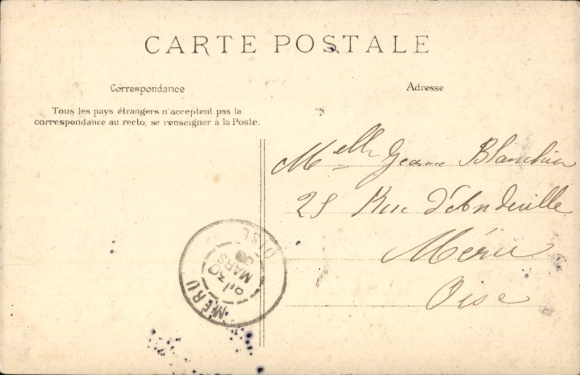 CARTE POSTALE
Correspondance
Adresse
Tous les pays étrangers n'acceptent pas la
correspondance au recto, se renseigner à la Poste.
Melle Jeane
25 Rue d'Andeville
Méru
Oise
MÉRU
30
MARS
OISE